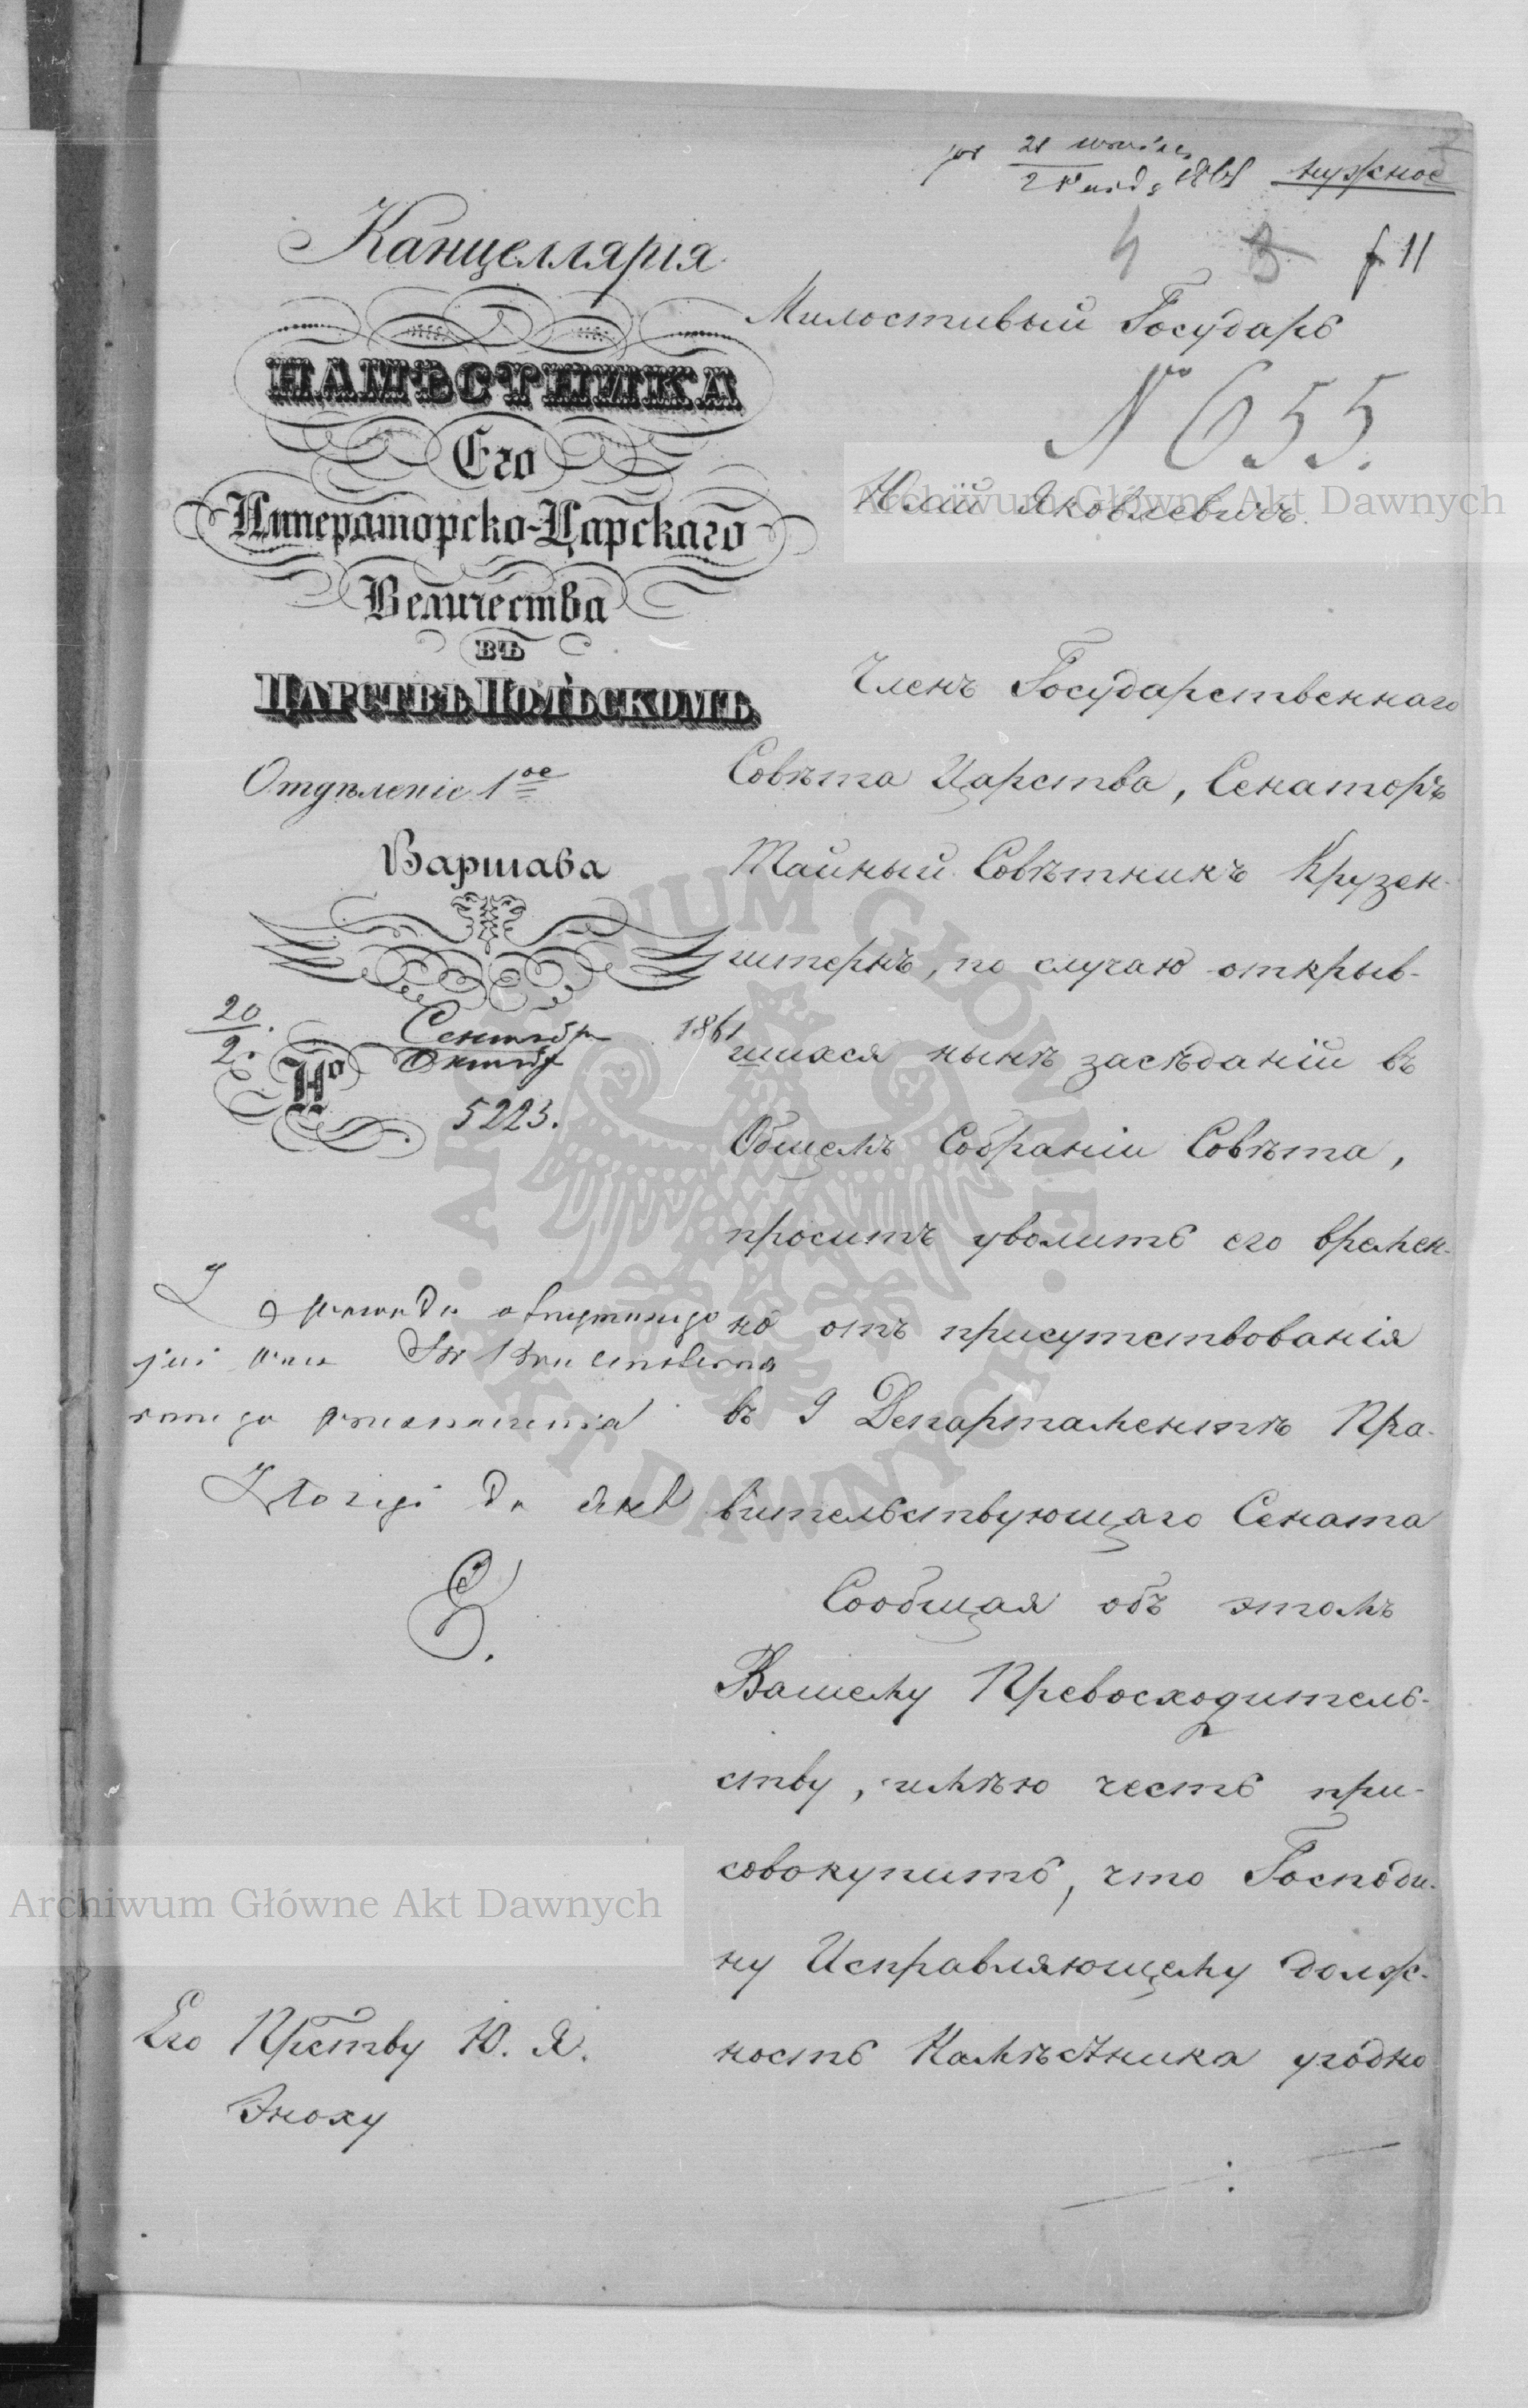 нужное
f 11
Канцеллярія
НАМѢСТНИКА
Его
Императорско-Царскаго
Величества
ВЪ
ЦАРСТВѢ ПОЛЬСКОМЪ
Отдѣленіе 1ое
Варшава
20/2 Сентябр/Октябр 1861
№ 5223.
Милостивый Государь
№ 655.
Юлій Яковлевичъ.
Членъ Государственнаго
Совѣта Царства, Сенаторъ
Тайный Совѣтникъ Крузен-
штернъ, по случаю открыв-
шихся нынѣ засѣданій въ
Общемъ Собраніи Совѣта,
проситъ уволить его времен-
но отъ присутствованія
въ 9 Департаментѣ Пра-
вительствующаго Сената
Сообщая объ этомъ
Вашему Превосходитель-
ству, имѣю честь при-
совокупить, что Господи-
ну Исправляющему долж-
ность Намѣстника угодно
Złożyć do akt
E.
Его Прству Ю. Я.
Эноху
Archiwum Główne Akt Dawnych
ARCHIWUM GŁÓWNE AKT DAWNYCH
Archiwum Główne Akt Dawnych